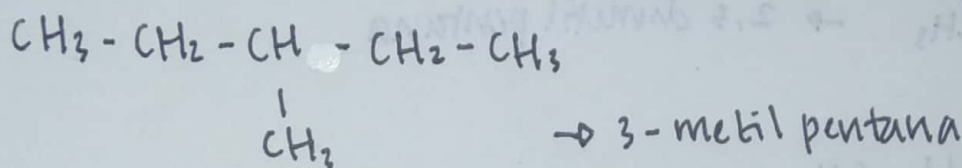 CH3 - CH2 - CH - CH2 - CH3
|
CH3 → 3-metil pentana